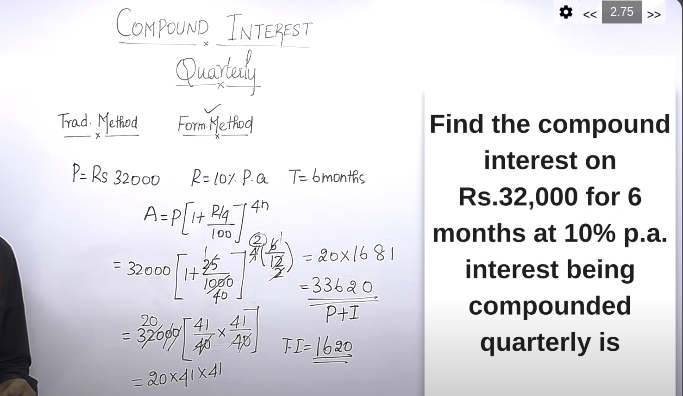 COMPOUND INTEREST
Quarterly
Trad. Method Form. Method
P = Rs 32000 R = 10% P.a T = 6 months
A = P[1 + R/4 / 100]^4n
= 32000[1 + 25/1000 40]^4(6/12) = 20×1681
= 33620
P+I
= 32000[41/40 × 41/40] F.I = 1620
= 20×41×41
<< 2.75 >>
Find the compound
interest on
Rs.32,000 for 6
months at 10% p.a.
interest being
compounded
quarterly is